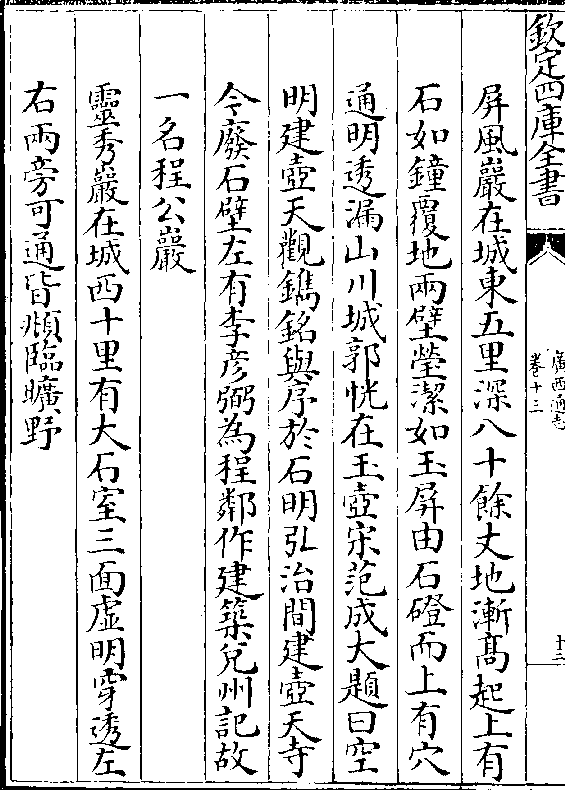 欽定四庫全書
廣西通志
卷十三
十三
屏風巖在城東五里深八十餘丈地漸髙起上有
石如鐘覆地兩壁瑩潔如玉屏由石磴而上有穴
通明透漏山川城郭恍在玉壺宋范成大題曰空
明建壺天觀鐫銘與序於石明弘治間建壺天寺
今廢石壁左有李彦弼為程鄰作建築允州記故
一名程公巖
靈秀巖在城西十里有大石室三面虚明穿透左
右兩旁可通皆頫臨曠野